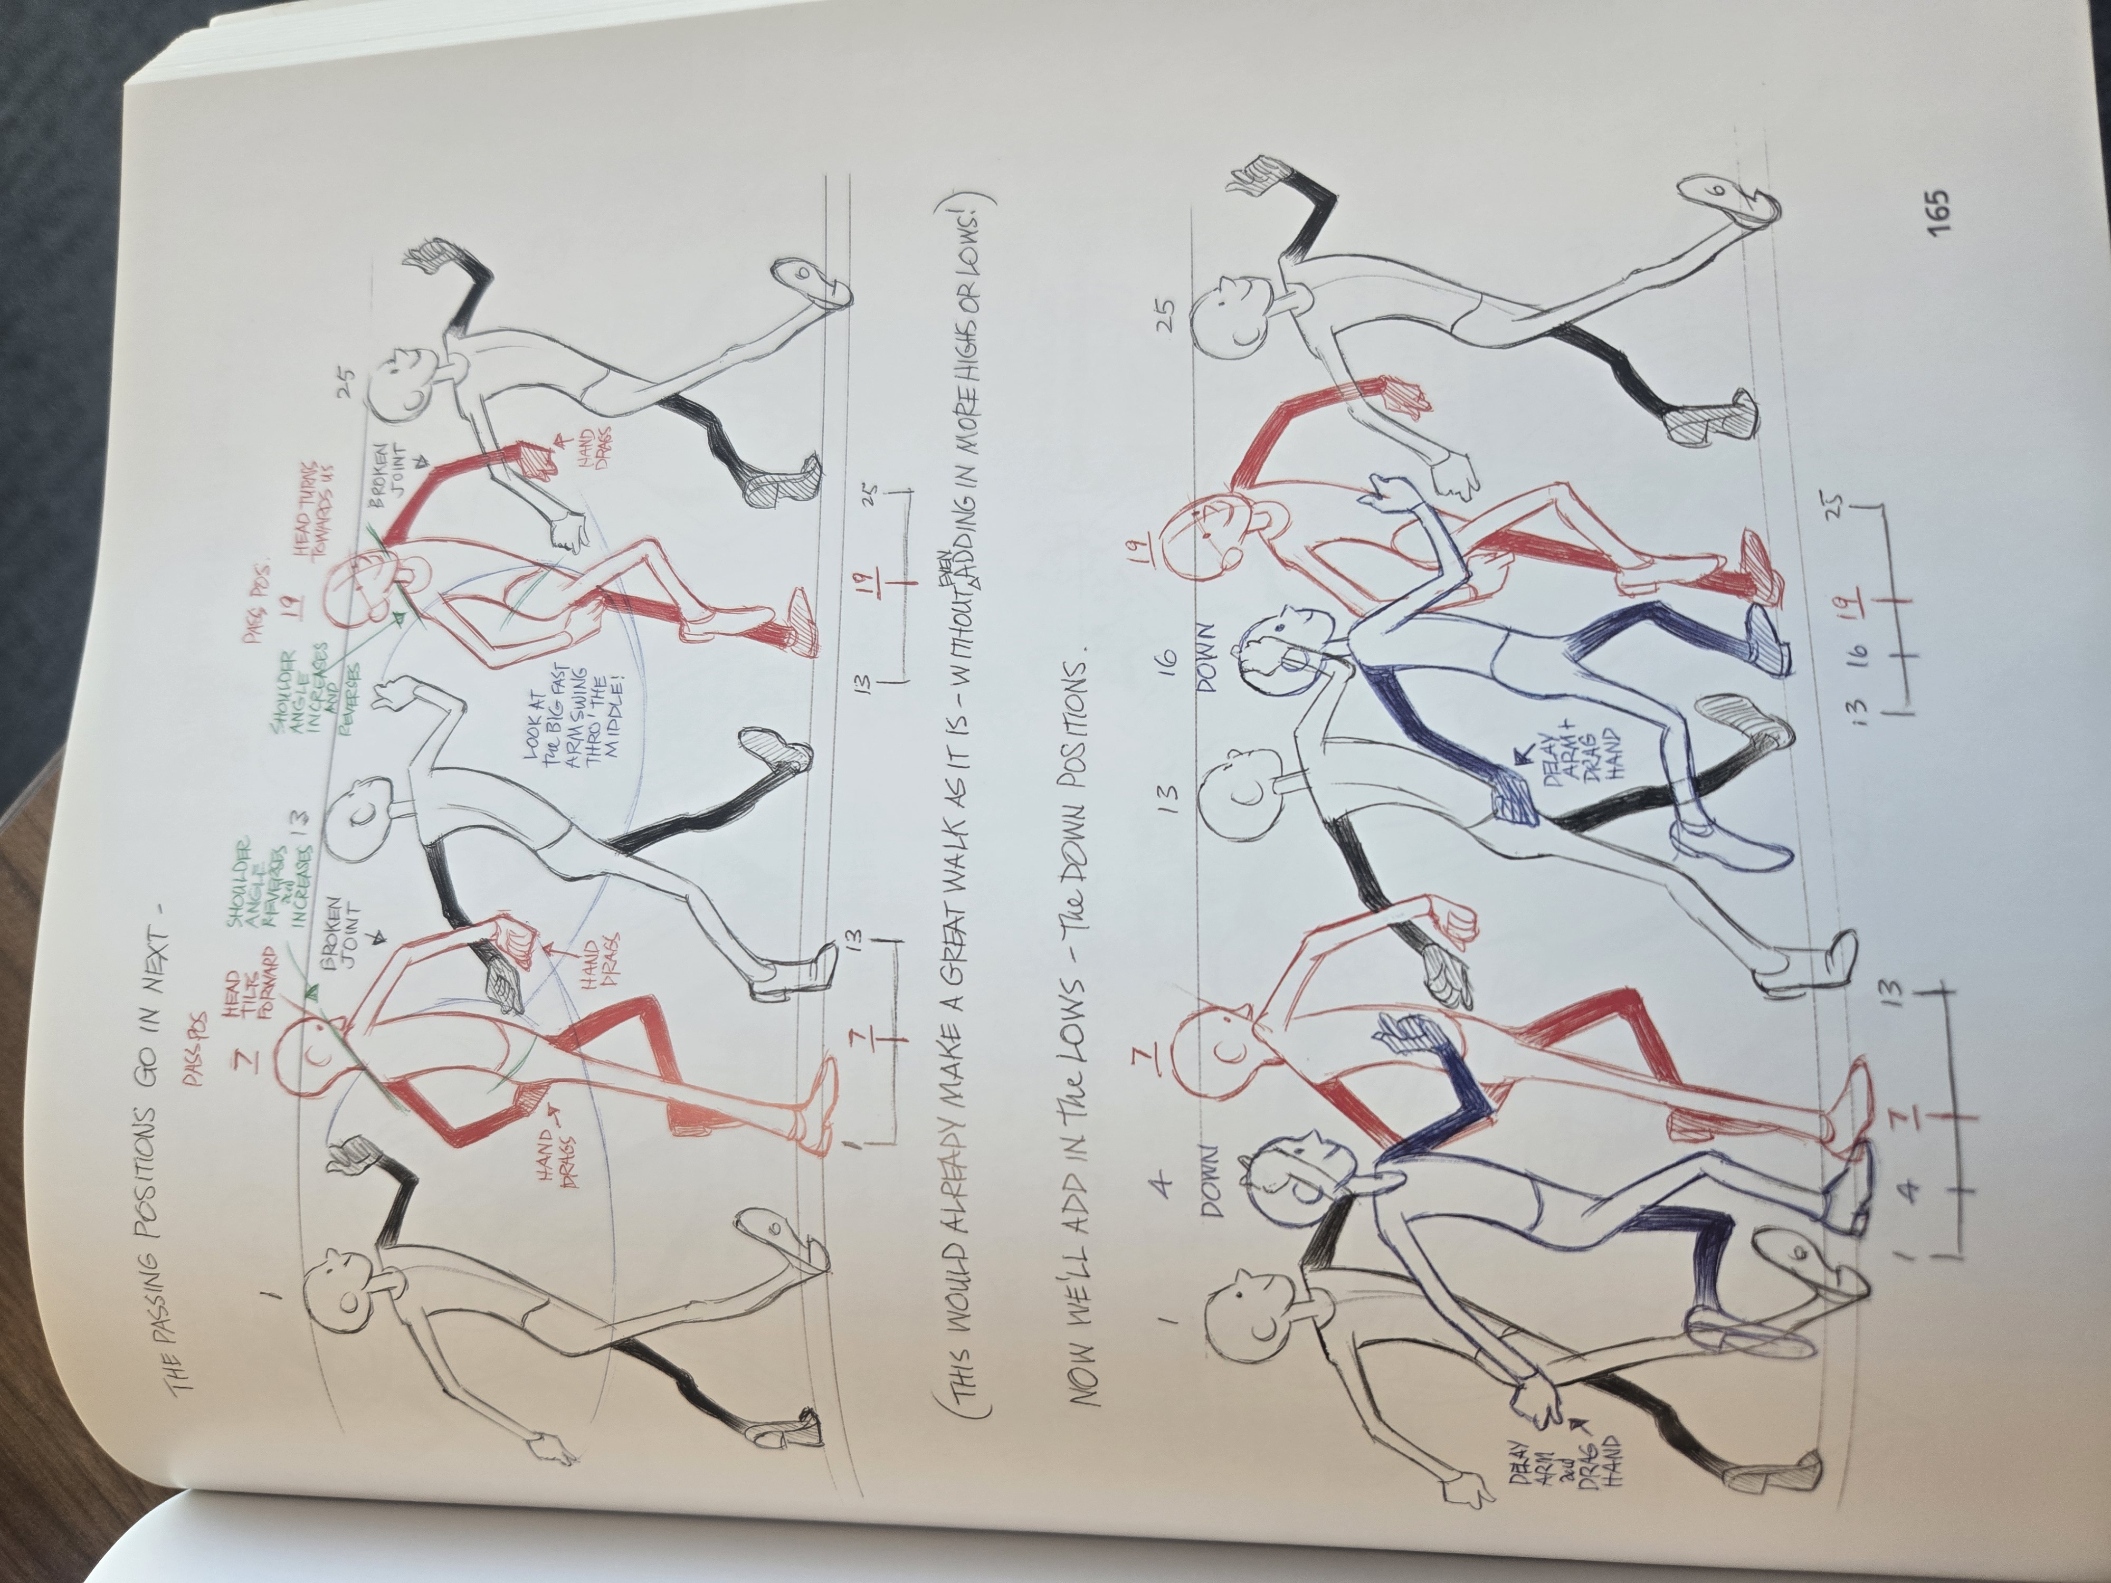 THE PASSING POSITIONS GO IN NEXT -
PASS POS
1
7
HEAD
TILTS
FORWARD
SHOULDER
ANGLE
REVERSES
and
INCREASES
13
BROKEN
JOINT
SHOULDER
ANGLE
INCREASES
AND
REVERSES
PASS POS.
19
HEAD TURNS
TOWARDS US
BROKEN
JOINT
25
HAND
DRAGS
HAND
DRAGS
LOOK AT
the BIG FAST
ARM SWING
THRO' THE
MIDDLE!
HAND
DRAGS
1 7 13
13 19 25
(THIS WOULD ALREADY MAKE A GREAT WALK AS IT IS - WITHOUT EVEN ADDING IN MORE HIGHS OR LOWS!)
NOW WE'LL ADD IN the LOWS - The DOWN POSITIONS.
1
4
DOWN
7
13
16
DOWN
19
25
DELAY
ARM
and
DRAG
HAND
DELAY
ARM +
DRAG
HAND
6
6
6
6
1 4 7 13
13 16 19 25
165